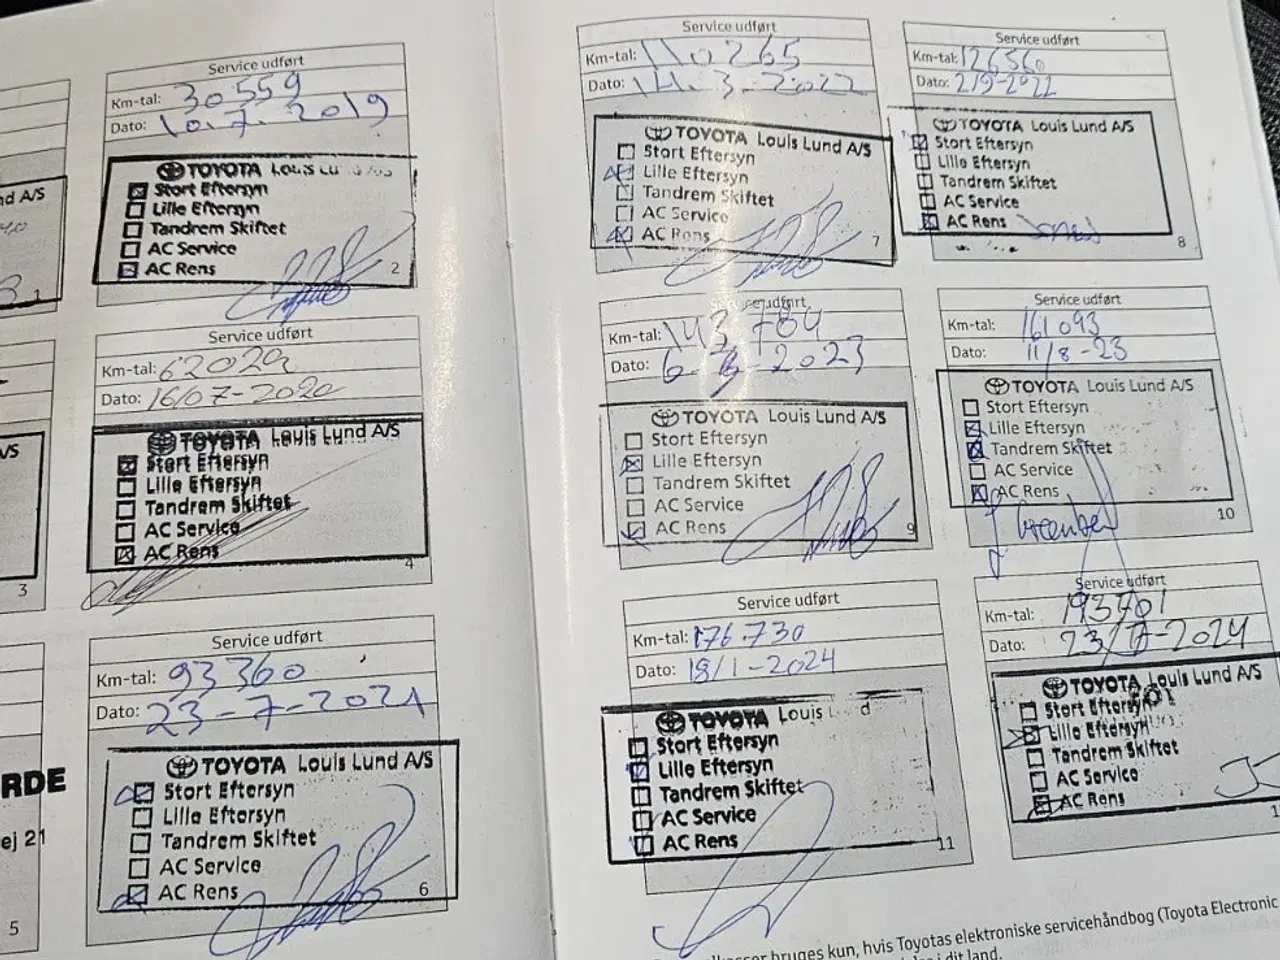 d A/S
1
Service udført
Km-tal: 30559
Dato: 10.7.2019
TOYOTA Louis Lu
Stort Eftersyn
Lille Eftersyn
Tandrem Skiftet
AC Service
AC Rens
2
/S
3
Service udført
Km-tal: 62029
Dato: 16/07-2020
TOYOTA Louis Lund A/S
Stort Eftersyn
Lille Eftersyn
Tandrem Skiftet
AC Service
AC Rens
4
RDE
ej 21
5
Service udført
Km-tal: 93360
Dato: 23-7-2021
TOYOTA Louis Lund A/S
Stort Eftersyn
Lille Eftersyn
Tandrem Skiftet
AC Service
AC Rens
6
Service udført
Km-tal: 110265
Dato: 14.3-2022
TOYOTA Louis Lund A/S
Stort Eftersyn
Lille Eftersyn
Tandrem Skiftet
AC Service
AC Rens
7
Service udført
Km-tal: 126560
Dato: 2/9-2022
TOYOTA Louis Lund A/S
Stort Eftersyn
Lille Eftersyn
Tandrem Skiftet
AC Service
AC Rens
8
Service udført
Km-tal: 143784
Dato: 6-3-2023
TOYOTA Louis Lund A/S
Stort Eftersyn
Lille Eftersyn
Tandrem Skiftet
AC Service
AC Rens
9
Service udført
Km-tal: 161093
Dato: 11/8-23
TOYOTA Louis Lund A/S
Stort Eftersyn
Lille Eftersyn
Tandrem Skiftet
AC Service
AC Rens
10
Service udført
Km-tal: 176.730
Dato: 18/1-2024
TOYOTA Louis L d
Stort Eftersyn
Lille Eftersyn
Tandrem Skiftet
AC Service
AC Rens
11
Service udført
Km-tal: 193701
Dato: 23/7-2024
TOYOTA Louis Lund A/S
Stort Eftersyn
Lille Eftersyn
Tandrem Skiftet
AC Service
AC Rens
1
bruges kun, hvis Toyotas elektroniske servicehåndbog (Toyota Electronic
i dit land.